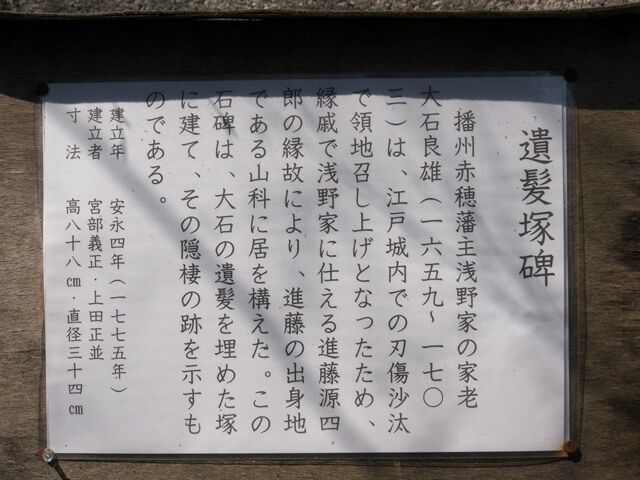 遺髪塚碑
播州赤穂藩主浅野家の家老
大石良雄（一六五九～一七〇
三）は、江戸城内での刃傷沙汰
で領地召し上げとなったため、
縁戚で浅野家に仕える進藤源四
郎の縁故により、進藤の出身地
である山科に居を構えた。この
石碑は、大石の遺髪を埋めた塚
に建て、その隠棲の跡を示すも
のである。
建立年 安永四年（一七七五年）
建立者 宮部義正・上田正並
寸法 高八十八cm・直径三十四cm